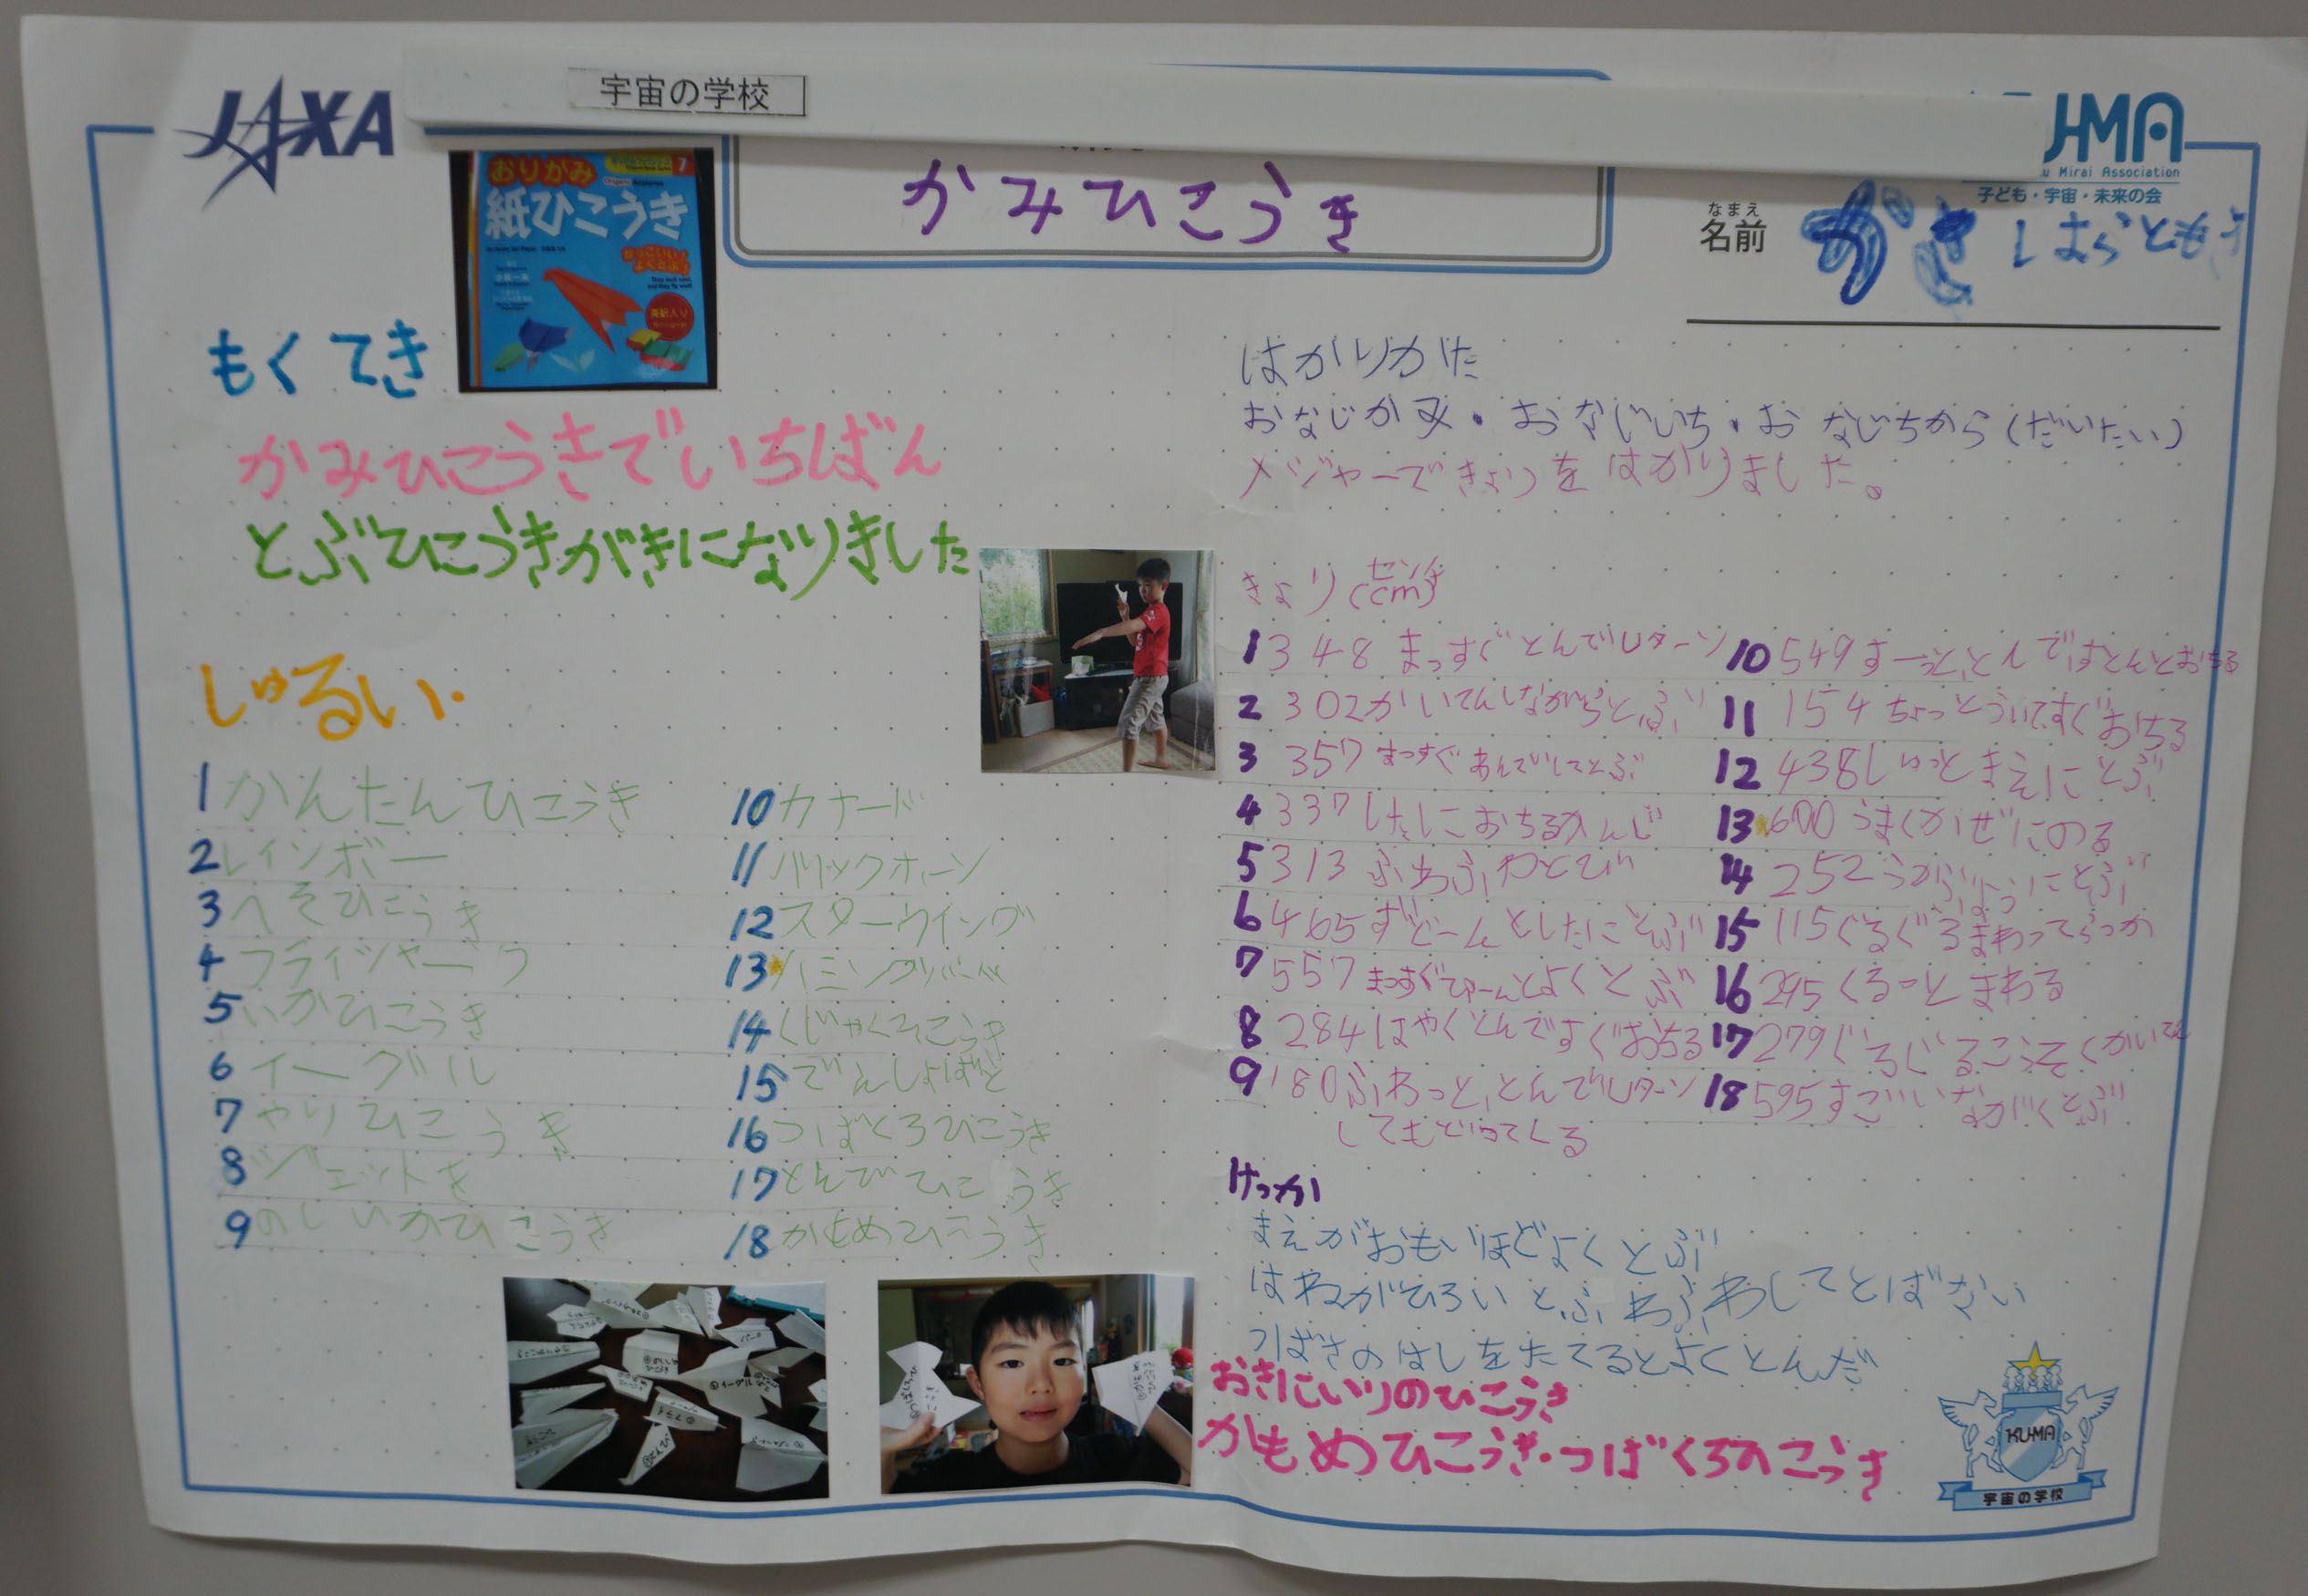 JAXA
宇宙の学校
おりがみ
紙ひこうき
かみひこうき
UMA
u Mirai Association
子ども・宇宙・未来の会
なまえ
名前
かさしはらともき
もくてき
かみひこうきでいちばん
とぶひこうきがきになりました
しゅるい
1 かんたんひこうき
2 レインボー
3 へそひこうき
4
5 いかひこうき
6 イーグル
7 やりひこうき
8 ジェットき
9 のしいかひこうき
10 カナード
11 バリックホーン
12 スターウイング
13 ハミングバード
14 くじゃくひこうき
15
16 つばくろひこうき
17 とんびひこうき
18 かもめひこうき
はかりかた
おなじかみ・おなじいち・おなじちから(だいたい)
メジャーできょりをはかりました。
きょり(cm)
センチ
1 348 まっすぐとんでUターン
2 302 かいてんしながらとぶ
3 357 まっすぐあんていしてとぶ
4 337 したにおちるかんじ
5 313 ふわふわとび
6 465 ずどーんとしたにとぶ
7 557 まっすぐびゅーんとよくとぶ
8 284 はやくとんですぐおちる
9 180 ふわっと、とんでUターン
してもどってくる
10 549 すーっと、とんですとんとおちる
11 154 ちょっとういてすぐおちる
12 438 しゅっとまえにとぶ
13 600 うまくかぜにのる
14 252 うかぶようにとぶ
15 115 ぐるぐるまわってらっか
16 295 くるっとまわる
17 279 ぐるぐるこうそくかいてん
18 595 すごいながくとぶ
けっか
まえがおもいほどよくとぶ
はねがひろいとふわふわしてとばない
つばさのはしをたてるとよくとんだ
おきにいりのひこうき
かもめひこうき・つばくろひこうき
KU-MA
宇宙の学校